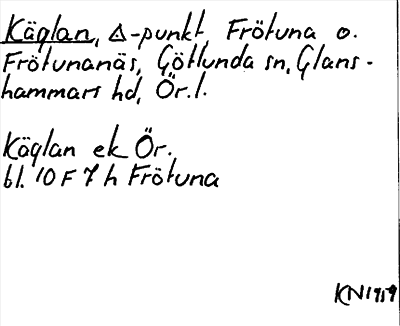 Käglan, △-punkt, Frötuna o.
Frötunanäs, Götlunda sn, Glans-
hammars hd, Ör. l.
Käglan ek Ör.
bl. 10 F 7 h Frötuna
KN 1959